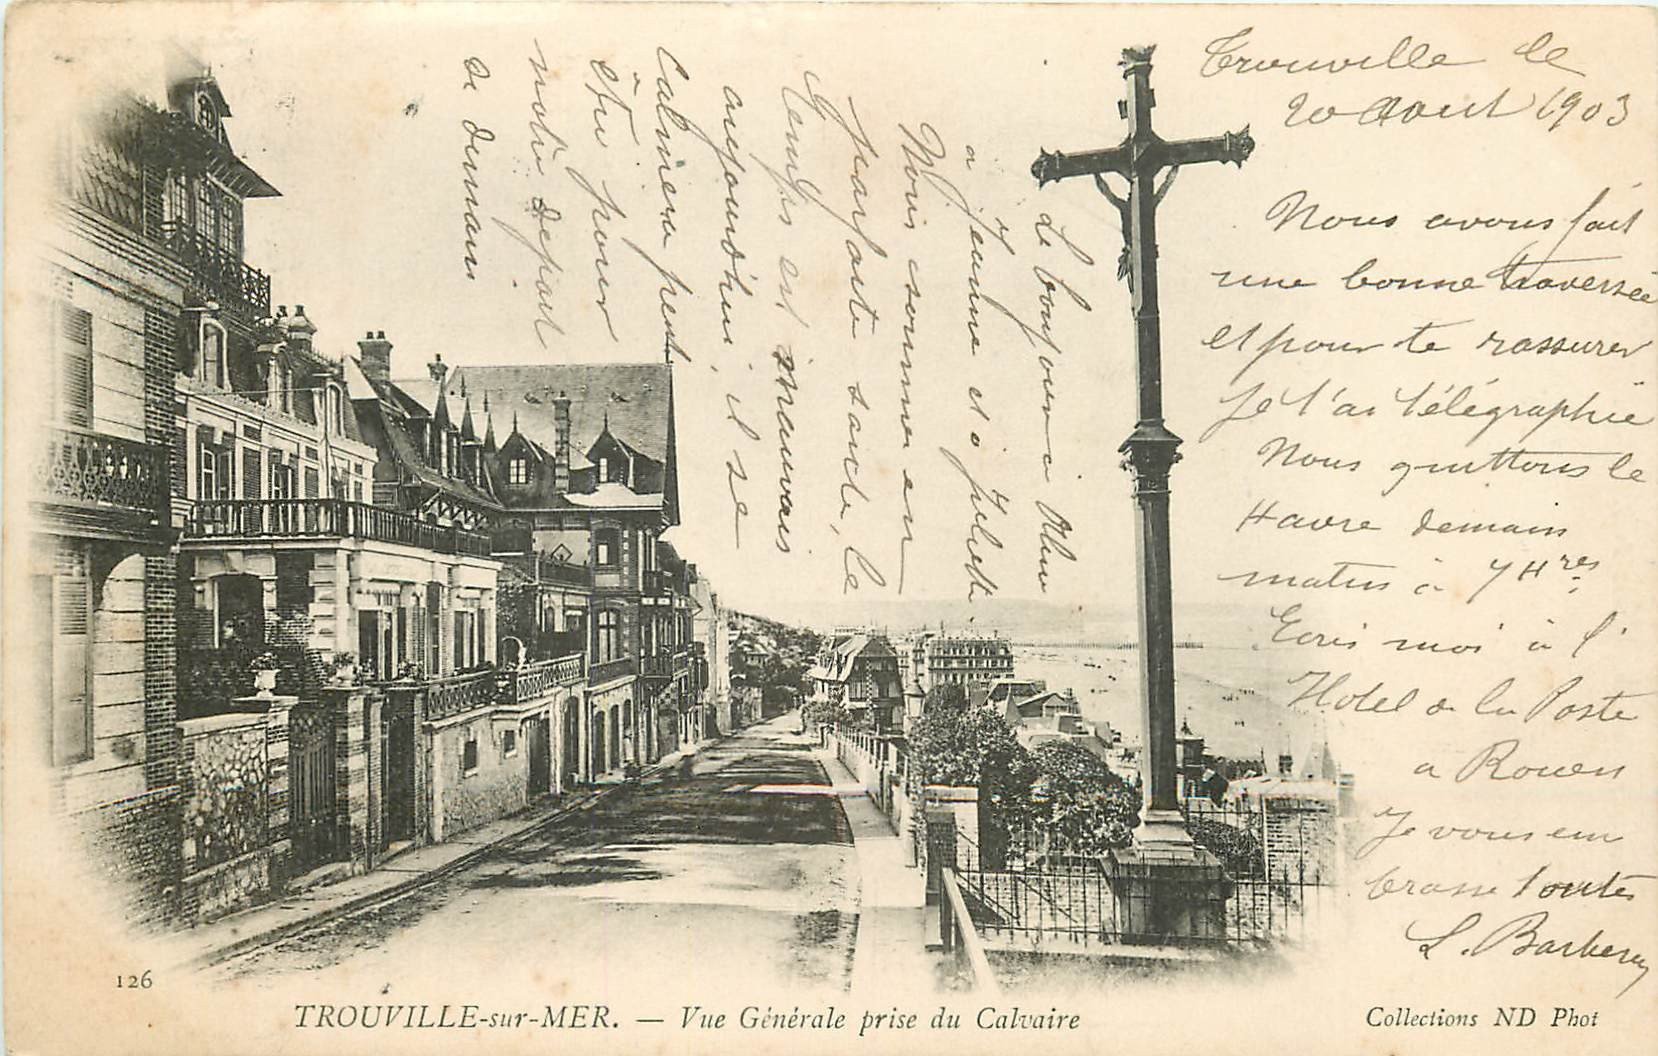 Trouville le
20 Aout 1903
Nous avons fait
une bonne traversée
et pour te rassurer
Je t'ai télégraphié
Nous quittons le
Havre demain
matin à 7 Hres
Ecris moi à l'
Hotel de la Poste
a Rouen
Je vous em
brasse toutes
L. Barbery
Le bonjour à
a Jeanne et à Juliette
Nous sommes en
parfaite santé, le
temps est mauvais
aujourd'hui, il se
calmera peut
être pour
notre depart
de demain
126
TROUVILLE-sur-MER. — Vue Générale prise du Calvaire
Collections ND Phot